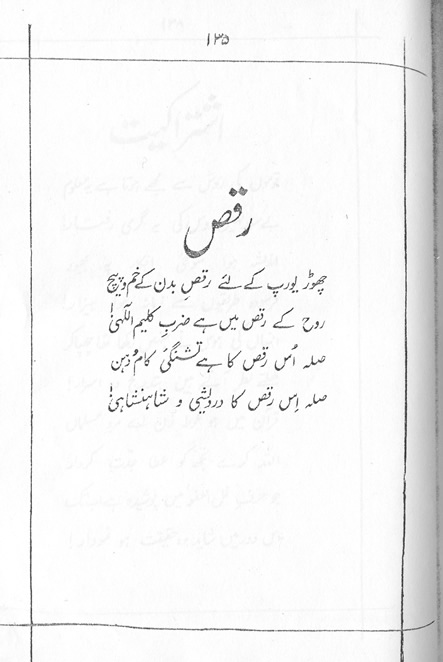 ۱۳۵
رقص
چھوڑ یورپ کے لئے رقصِ بدن کے خم و پیچ
روح کے رقص میں ہے ضربِ کلیم اللّٰہی!
صلہ اُس رقص کا ہے تشنگیٔ کام و دہن
صلہ اِس رقص کا درویشی و شاہنشاہی!